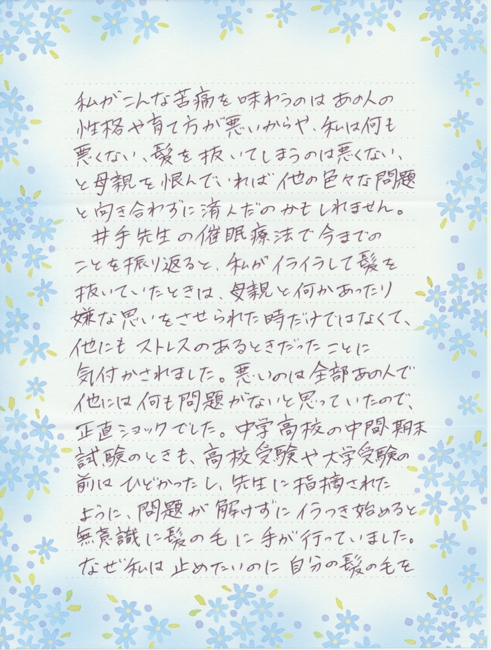 私がこんな苦痛を味わうのはあの人の
性格や育て方が悪いからや、私は何も
悪くない、髪を抜いてしまうのは悪くない、
と母親を恨んでいれば他の色々な問題
と向き合わずに済んだのかもしれません。
井手先生の催眠療法で今までの
ことを振り返ると、私がイライラして髪を
抜いていたときは、母親と何かあったり
嫌な思いをさせられた時だけではなくて、
他にもストレスのあるときだったことに
気付かされました。悪いのは全部あの人で
他には何も問題がないと思っていたので、
正直ショックでした。中学高校の中間・期末
試験のときも、高校受験や大学受験の
前はひどかったし、先生に指摘された
ように、問題が解けずにイラつき始めると
無意識に髪の毛に手が行っていました。
なぜ私は止めたいのに自分の髪の毛を